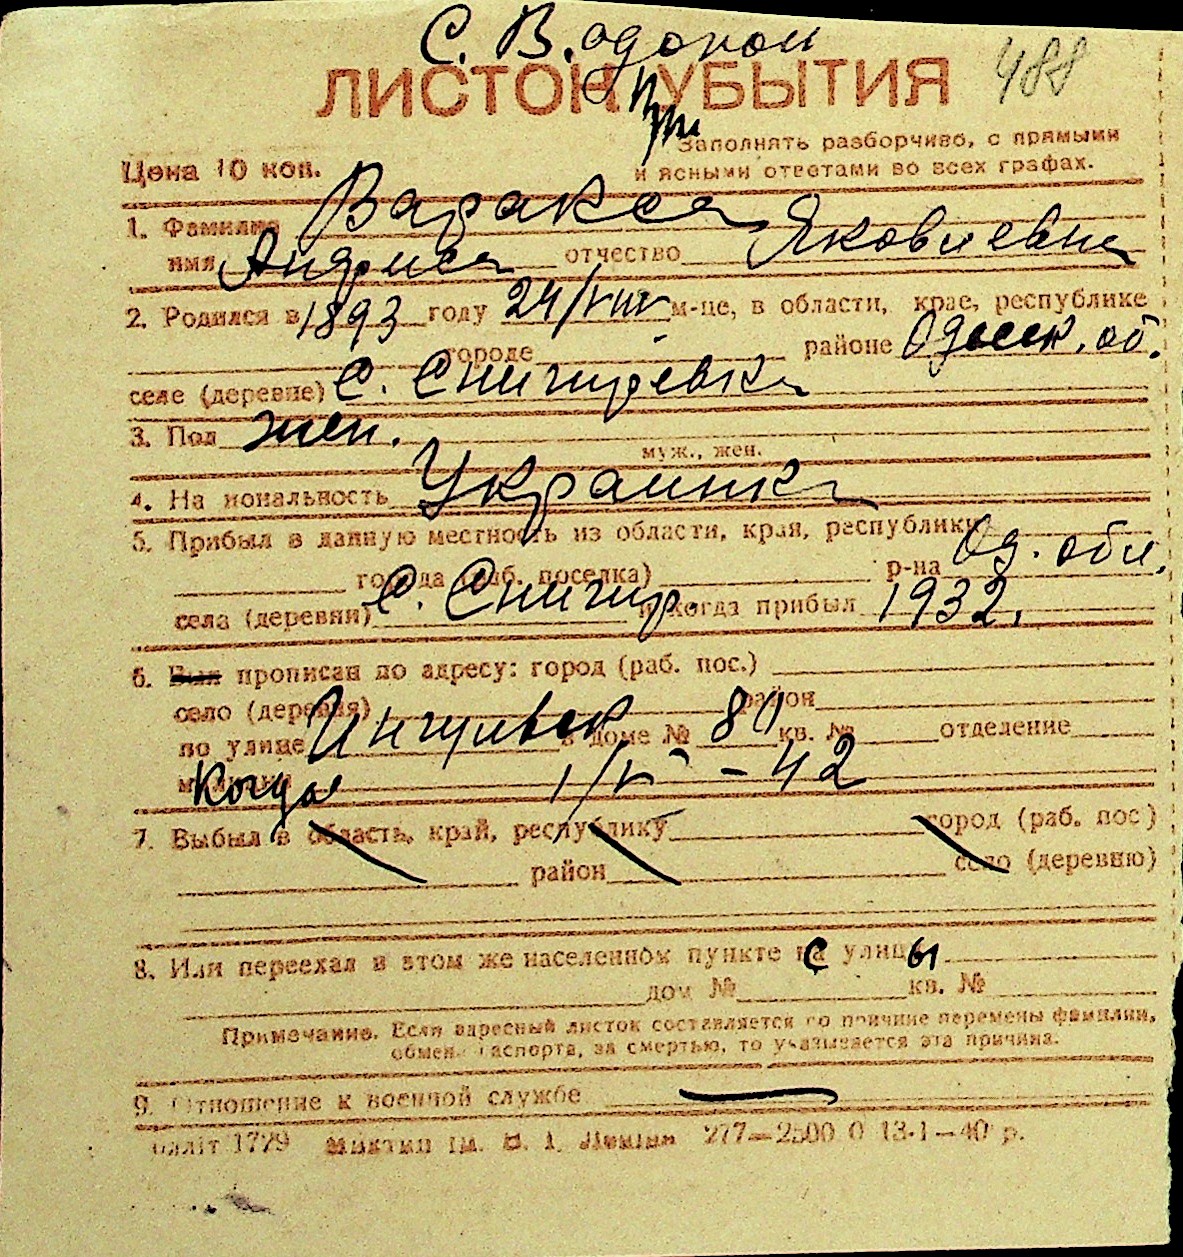 С. В.
488
ЛИСТОК УБЫТИЯ
Заполнять разборчиво, с прямыми
Цена 10 коп.
и ясными ответами во всех графах.
1. Фамилия Варакса
имя отчество Яковлевна
2. Родился в 1893 году 24/VIII м-це, в области, крае, республике
городе районе Одесск. об.
селе (деревне) С. Снигиревка
3. Пол жен.
муж., жен.
4. Национальность Украинка
5. Прибыл в данную местность из области, края, республики
города (раб. поселка) р-на Од. обл.
села (деревни) С. Снигир. и когда прибыл 1932.
6. Был прописан по адресу: город (раб. пос.)
село (деревня) район
по улице Ингульск в доме № 80 кв. № отделение
милиции Когда 1/V - 42
7. Выбыл в область, край, республику город (раб. пос)
район село (деревню)
8. Или переехал в этом же населенном пункте с улицы
дом № кв. №
Примечание. Если адресный листок составляется по причине перемены фамилии,
обмена паспорта, за смертью, то указывается эта причина.
9. Отношение к военной службе —
1729 ім. В. І. Леніна 277—2500 0 13-1—40 р.